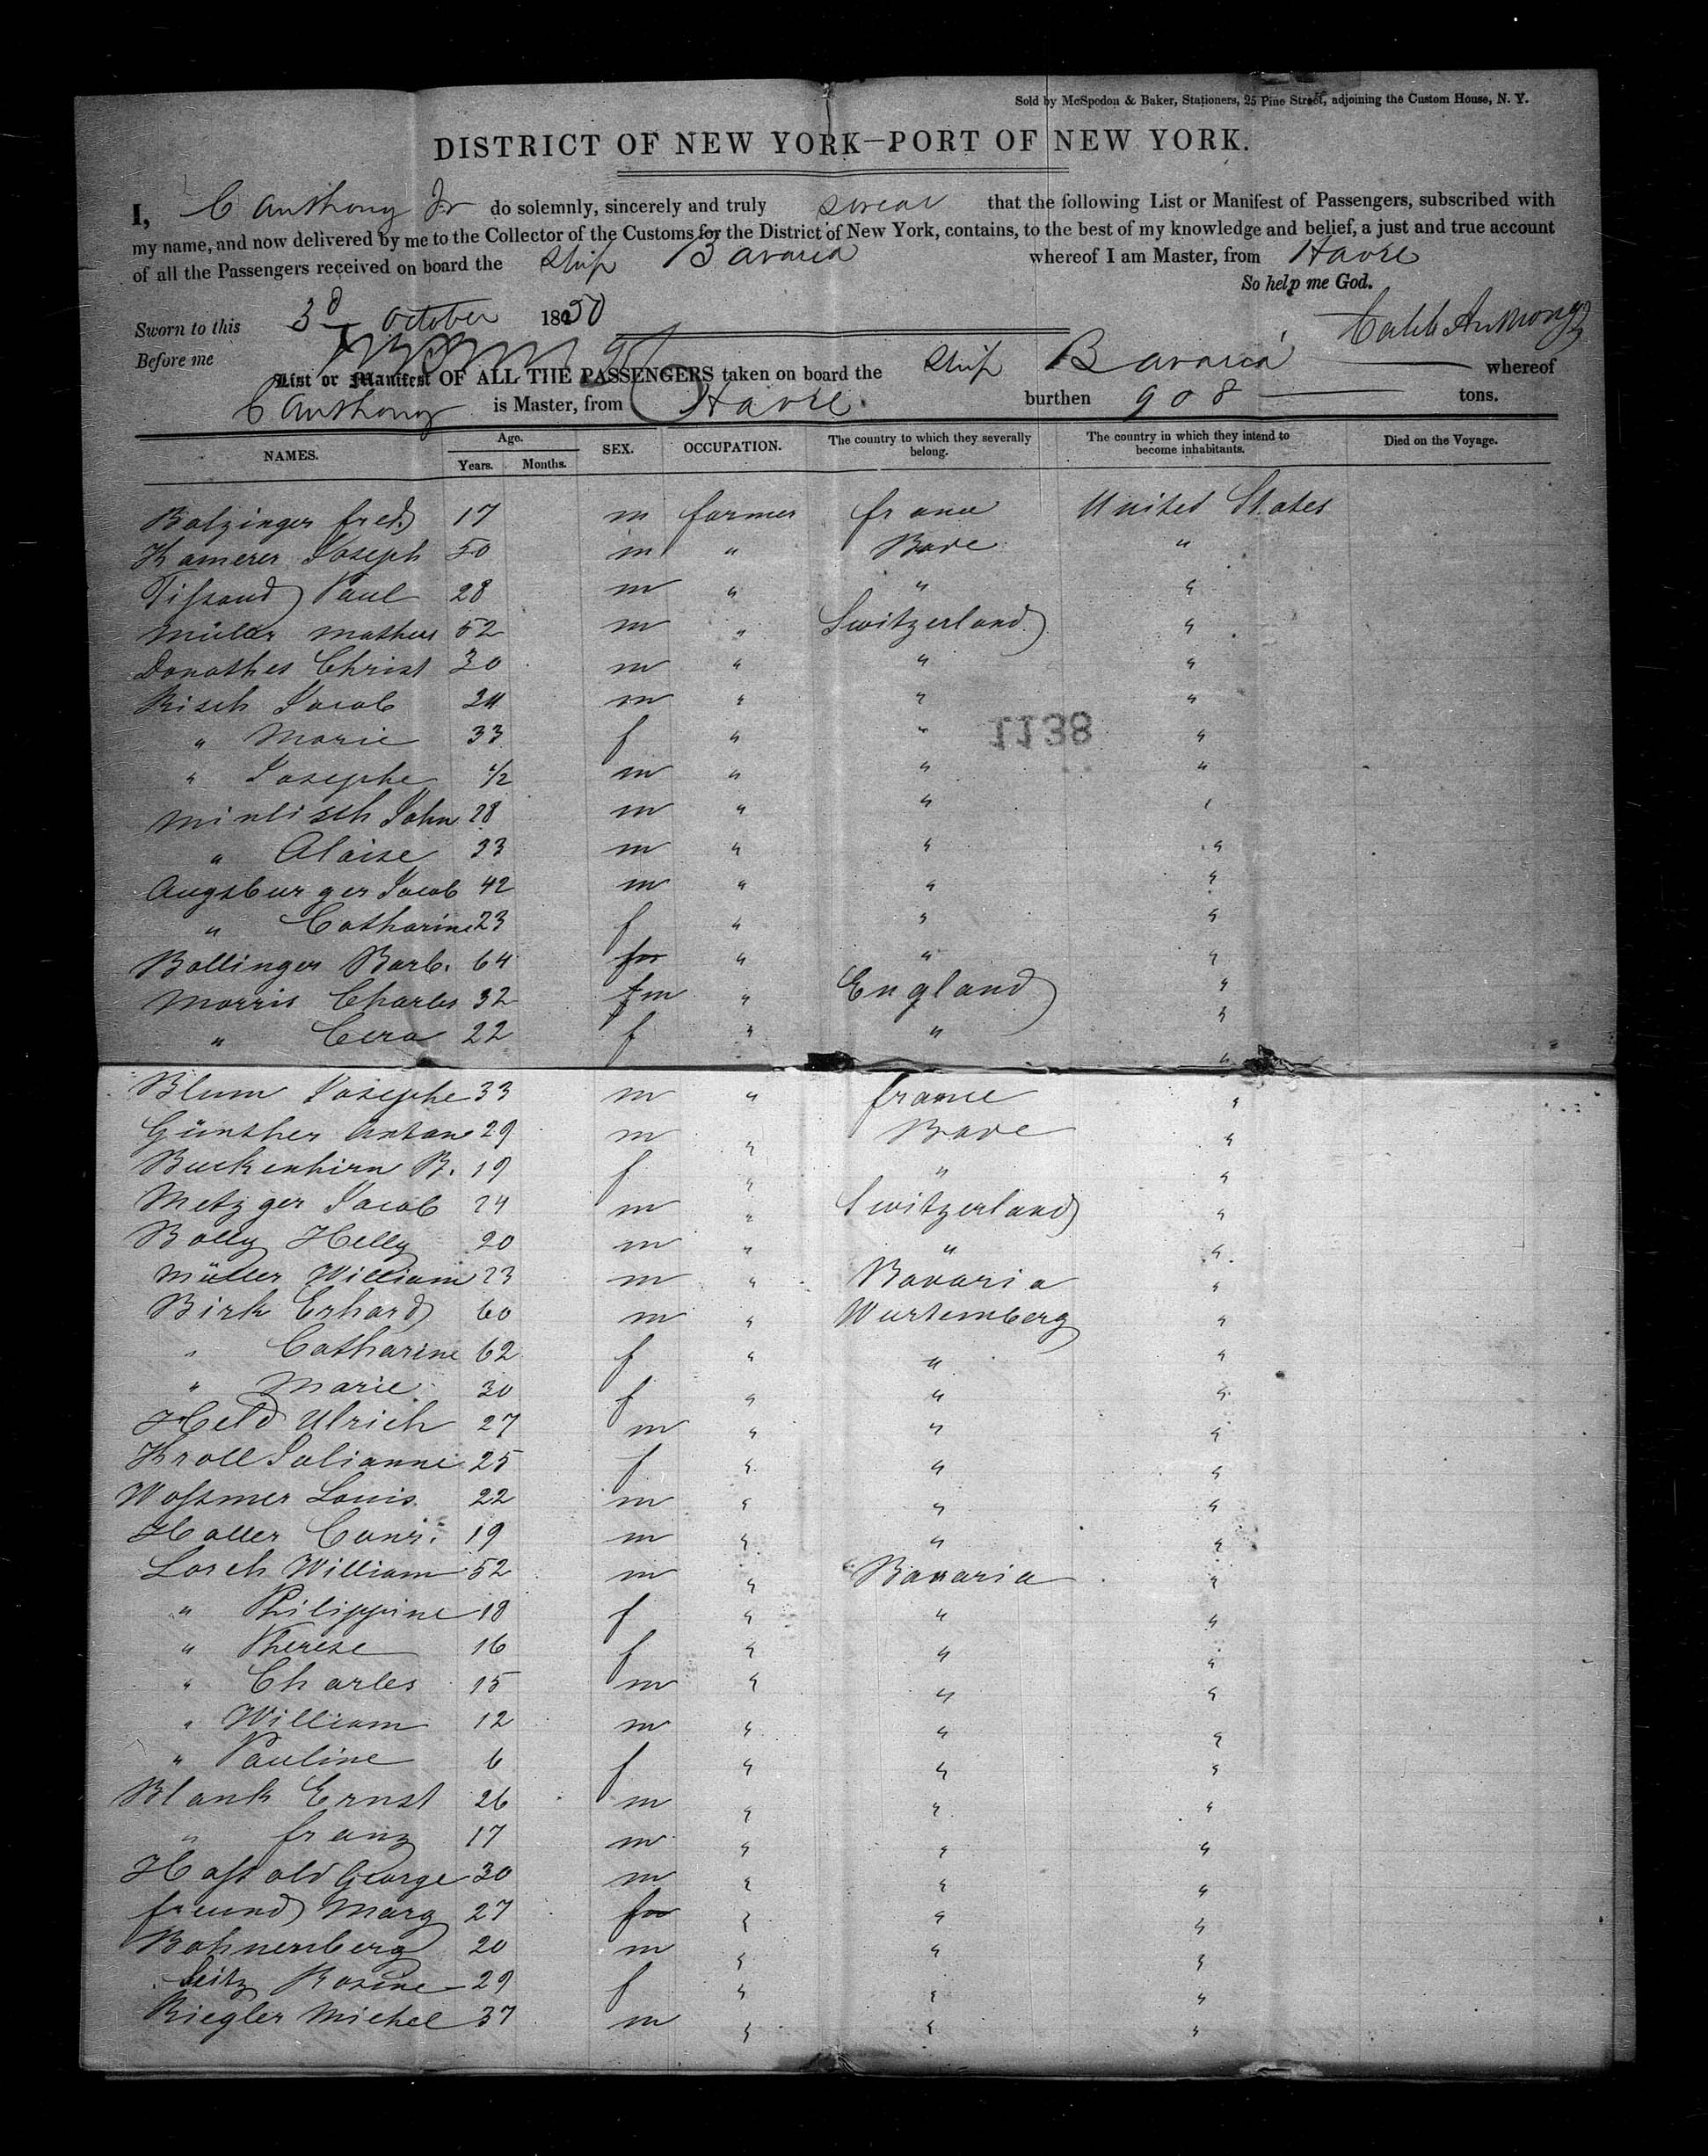 Sold by McSpedon & Baker, Stationers, 25 Pine Street, adjoining the Custom House, N. Y.
DISTRICT OF NEW YORK—PORT OF NEW YORK.
I, C Anthony Jr do solemnly, sincerely and truly swear that the following List or Manifest of Passengers, subscribed with
my name, and now delivered by me to the Collector of the Customs for the District of New York, contains, to the best of my knowledge and belief, a just and true account
of all the Passengers received on board the Ship Bavaria whereof I am Master, from Havre
So help me God.
Sworn to this 3d October 1850
Caleb Anthony
Before me
List or Manifest OF ALL THE PASSENGERS taken on board the Ship Bavaria whereof
C Anthony is Master, from Havre burthen 908 tons.
NAMES. Age. Years. Months. SEX. OCCUPATION. The country to which they severally belong. The country in which they intend to become inhabitants. Died on the Voyage.
Balzinger fred 17 m farmer france United States
Kamerer Joseph 50 m " Bade "
Tissaud Paul 28 m " " "
Müller Matheus 52 m " Switzerland "
Donathes Christ 30 m " " "
Risch Jacob 24 m " " "
" Marie 33 f " " "
1138
" Josephe 1/2 m " " "
Minlisch John 28 m " " "
" Aloise 33 m " " "
Augsburger Jacob 42 m " " "
" Catharine 23 f " " "
Bollinger Barb. 64 " " "
Morris Charles 32 m " England "
" Cera 22 f " " "
Blum Josephe 33 m " france "
Günther Antone 29 m " Bade "
Buckenhirn B. 19 f " " "
Metzger Jacob 24 m " Switzerland "
Bolly Helly 20 m " " "
Müller William 23 m " Bavaria "
Birk Erhard 60 m " Wurtemberg "
" Catharine 62 f " " "
" Marie 30 f " " "
Held Ulrich 27 m " " "
Kroll Julianne 25 f " " "
Wossmer Louis 22 m " " "
Haller Conr. 19 m " " "
Lorch William 52 m " Bavaria "
" Philippine 18 f " " "
" Therese 16 f " " "
" Charles 15 m " " "
" William 12 m " " "
" Pauline 6 f " " "
Blank Ernst 26 m " " "
" franz 17 m " " "
Hassold George 30 m " " "
freund Marg 27 " " "
Bohnenberg 20 m " " "
Seitz Rosine 29 f " " "
Riegler Michel 37 m " " "